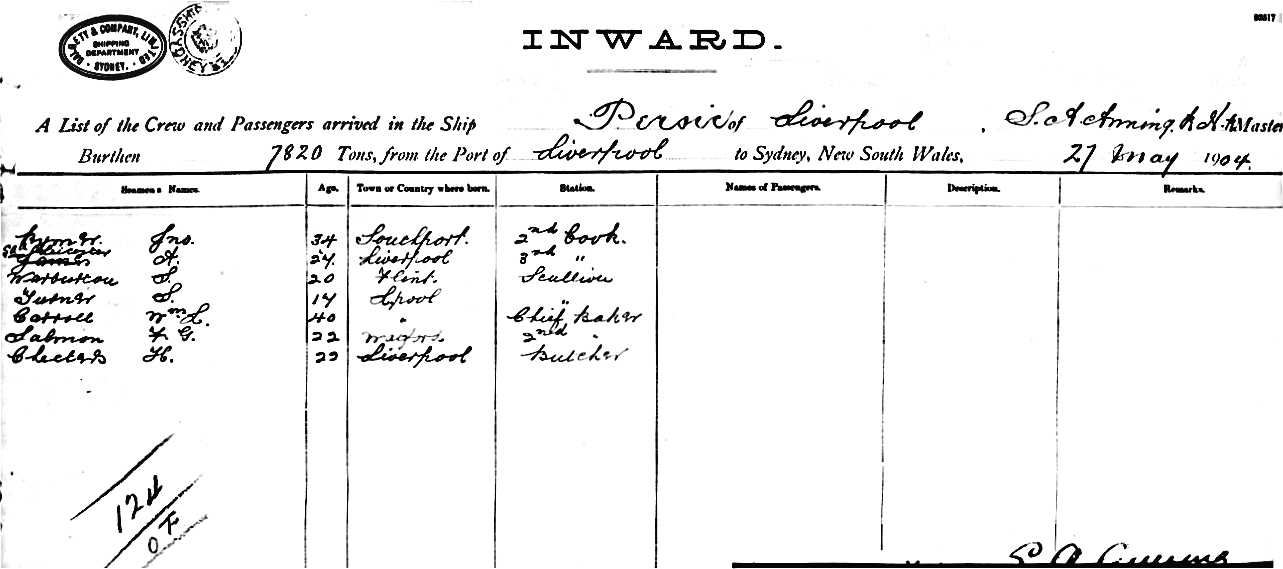 DALGETY & COMPANY, LIMITED
SHIPPING
DEPARTMENT
SYDNEY.
INWARD.
A List of the Crew and Passengers arrived in the Ship Persic of Liverpool, S. A Arming. R.N.R Master
Burthen 7820 Tons, from the Port of Liverpool to Sydney, New South Wales, 27 May 1904.
Seamen's Names. Age. Town or Country where born. Station. Names of Passengers. Description. Remarks.
Jno. 34 Southport. 2nd Cook.
A. 24 Liverpool 3rd "
Warburton S. 20 Flint. Scullion
Turner S. 17 Lpool "
Carroll Wm L. 40 " Chief Baker
Salmon F G. 22 2nd "
Checkers H. 22 Liverpool Butcher
124
O F